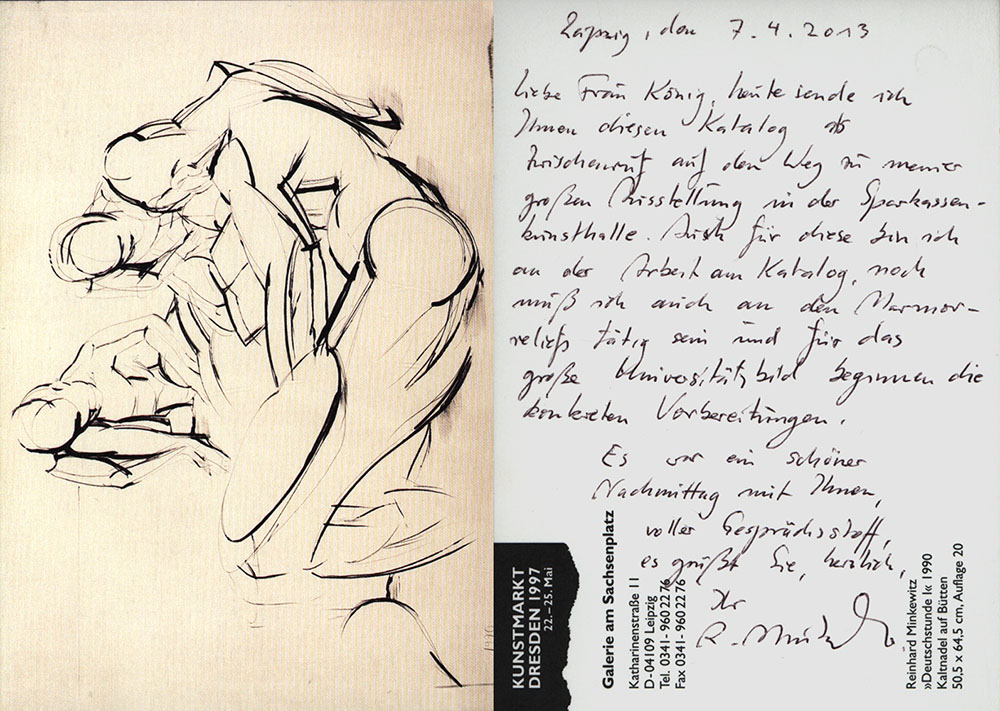 Leipzig, den 7.4.2013
Liebe Frau König, heute sende ich
Ihnen diesen Katalog als
Zwischenruf auf den Weg zu meiner
großen Ausstellung in der Sparkassen-
kunsthalle. Auch für diese bin ich
an der Arbeit am Katalog, noch
muß ich auch an den Marmor-
reliefs tätig sein und für das
große Universitätsbild beginnen die
konkreten Vorbereitungen.
Es war ein schöner
Nachmittag mit Ihnen,
voller Gesprächsstoff,
es grüßt Sie, herzlich,
Ihr
R. Minkewitz
KUNSTMARKT
DRESDEN 1997
22.–25. Mai
Galerie am Sachsenplatz
Katharinenstraße 11
D-04109 Leipzig
Tel. 0341- 960 22 76
Fax 0341- 960 22 76
Reinhard Minkewitz
»Deutschstunde I« 1990
Kaltnadel auf Bütten
50,5 x 64,5 cm, Auflage 20